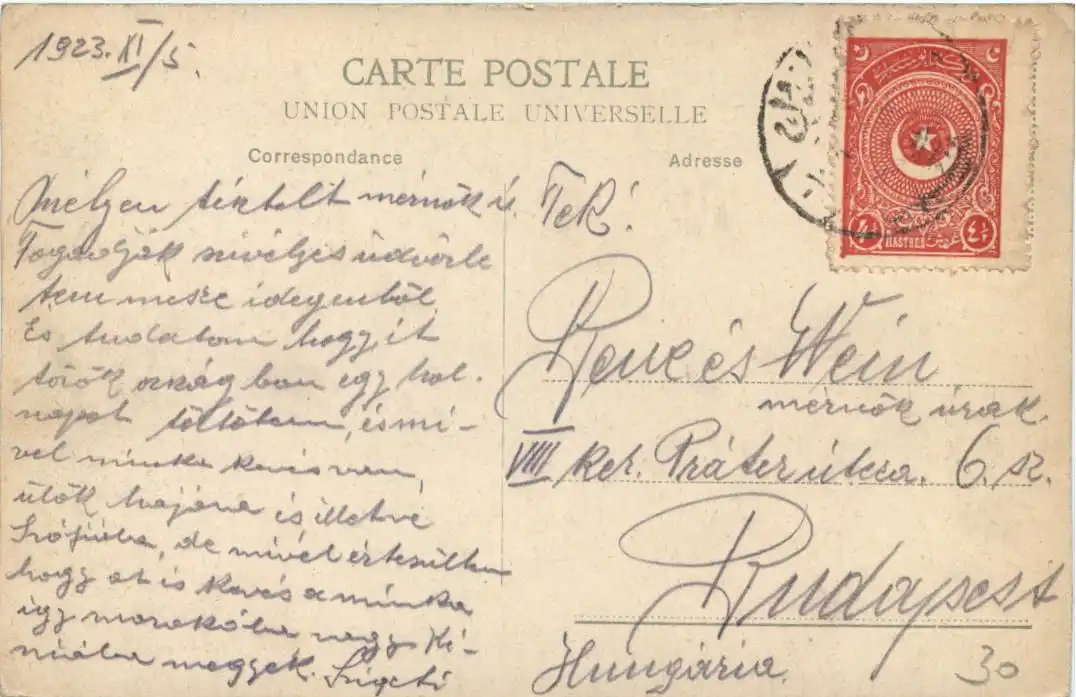 1923. XI/5.
CARTE POSTALE
UNION POSTALE UNIVERSELLE
Correspondance
Adresse
Mélyen tisztelt mérnök
Fogadják szivélyes üdvözle
tem messze idegenből
És tudatom hogy it
török országban egy hol-
napot töltöttem, és mi-
vel minka kevés van,
ülök hajóra és illetve
Szófiába, de mivel értesültem
hogy ot is kevés a minka
igy marokóba vagy Ki-
niába megyek. Szigeti
Tek!
René és Wein
mérnök urak.
VIII ker. Práter útcza. 6. sz.
Budapest
Hungária
30
PIASTRES